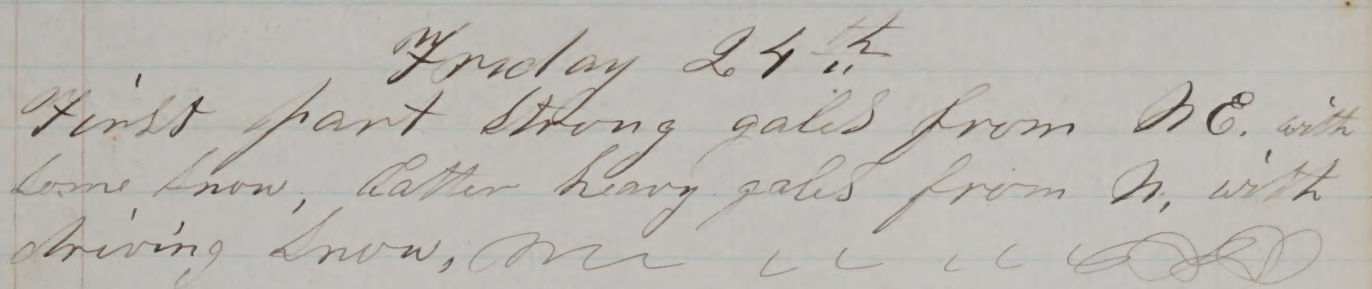 Friday 24th
First part strong gales from N E. with
some snow, Latter heavy gales from N. with
driving snow,